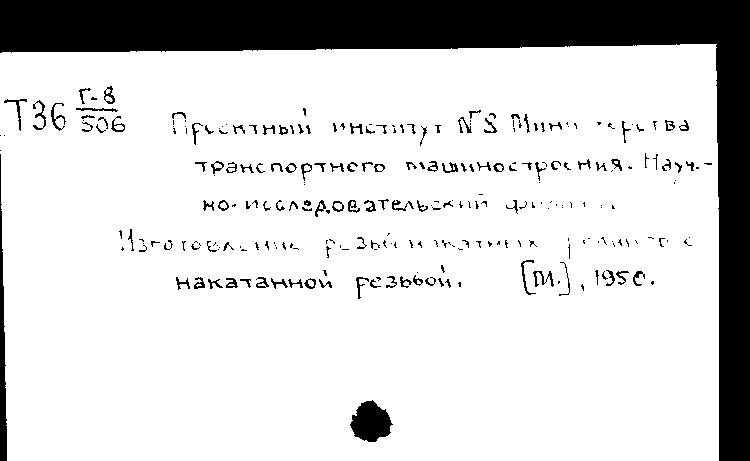 Т36 Г-8/506
Проектный институт №8 Министерства
транспортного машиностроения. Науч-
но-исследовательский филиал.
Изготовление резьбонакатных роликов с
накатанной резьбой. [М.], 1950.